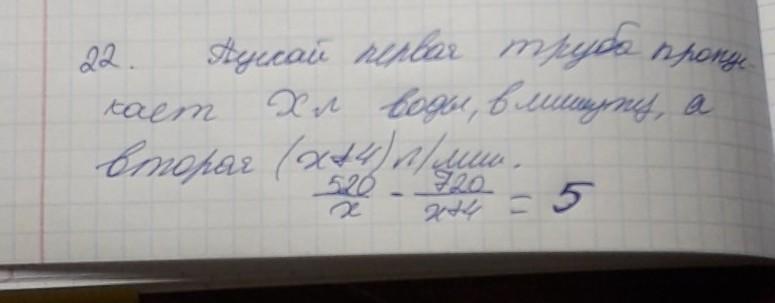 22. Пускай первая труба пропус-
кает х л воды, в минуту, а
вторая (х+4) л/мин.
520/x - 720/x+4 = 5